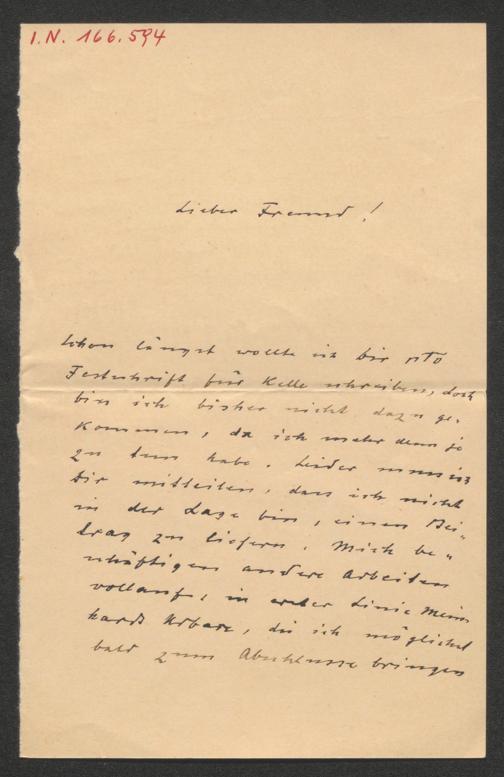 I.N. 166.594
Lieber Freund!
Schon längst wollte ich dir pto
Festschrift für Kelle schreiben, doch
bin ich bisher nicht dazu ge-
kommen, da ich mehr denn je
zu tun habe. Leider muss ich
dir mitteilen, dass ich nicht
in der Lage bin, einen Bei-
trag zu liefern. Mich be-
schäftigen andere Arbeiten
vollauf, in erster Linie
Urbare, die ich möglichst
bald zum Abschlusse bringen